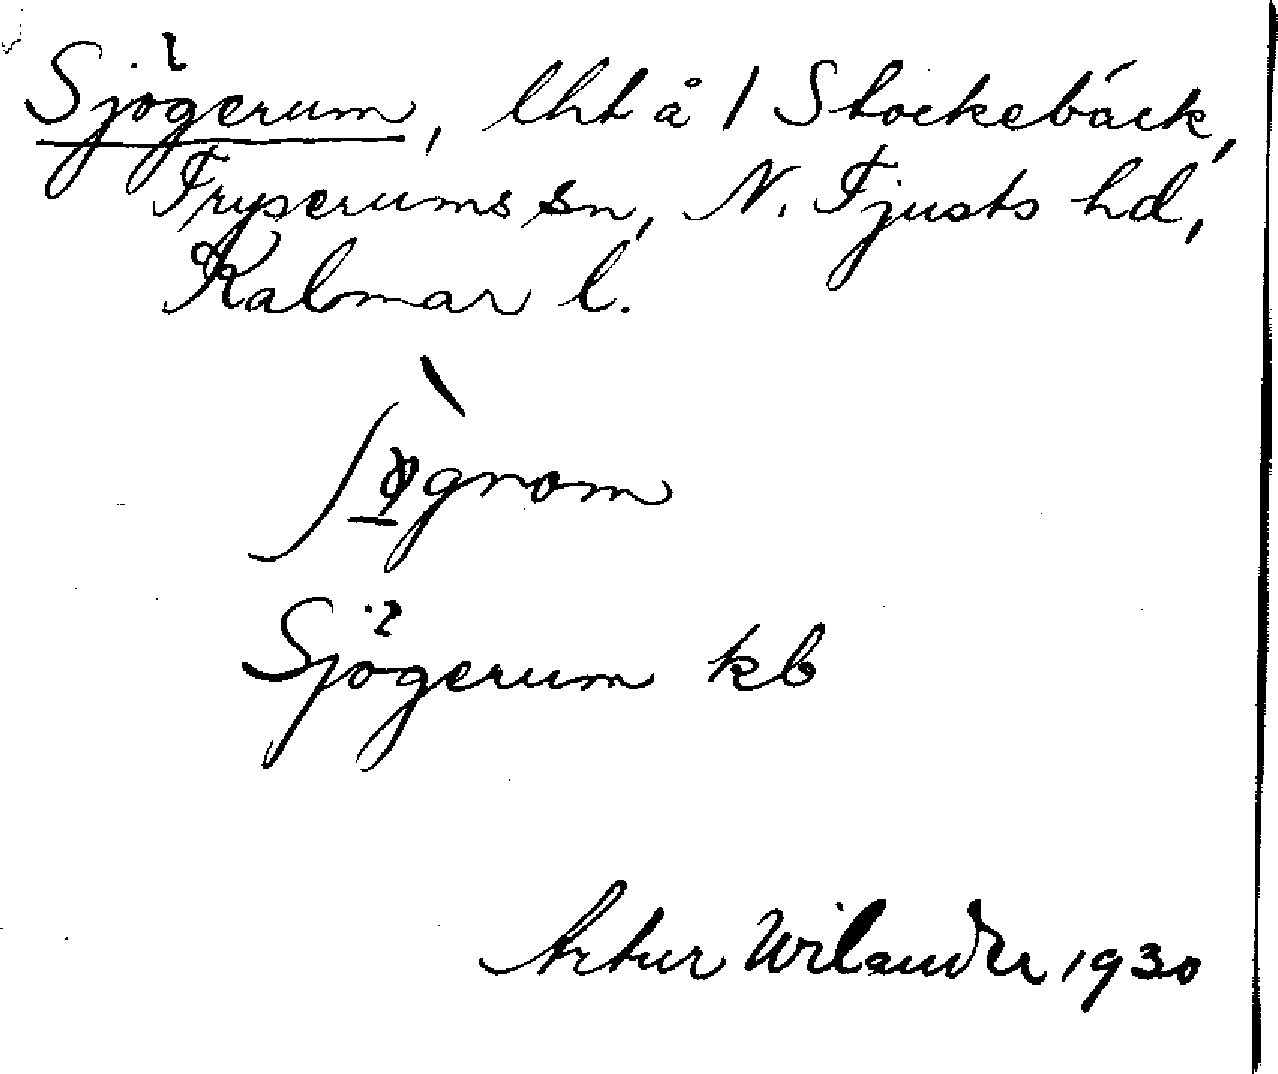 Sjögerum, lht å 1 Stockebäck,
Tryserums sn, N. Tjusts hd,
Kalmar l.
Sjögerum kb
Artur Wilander 1930